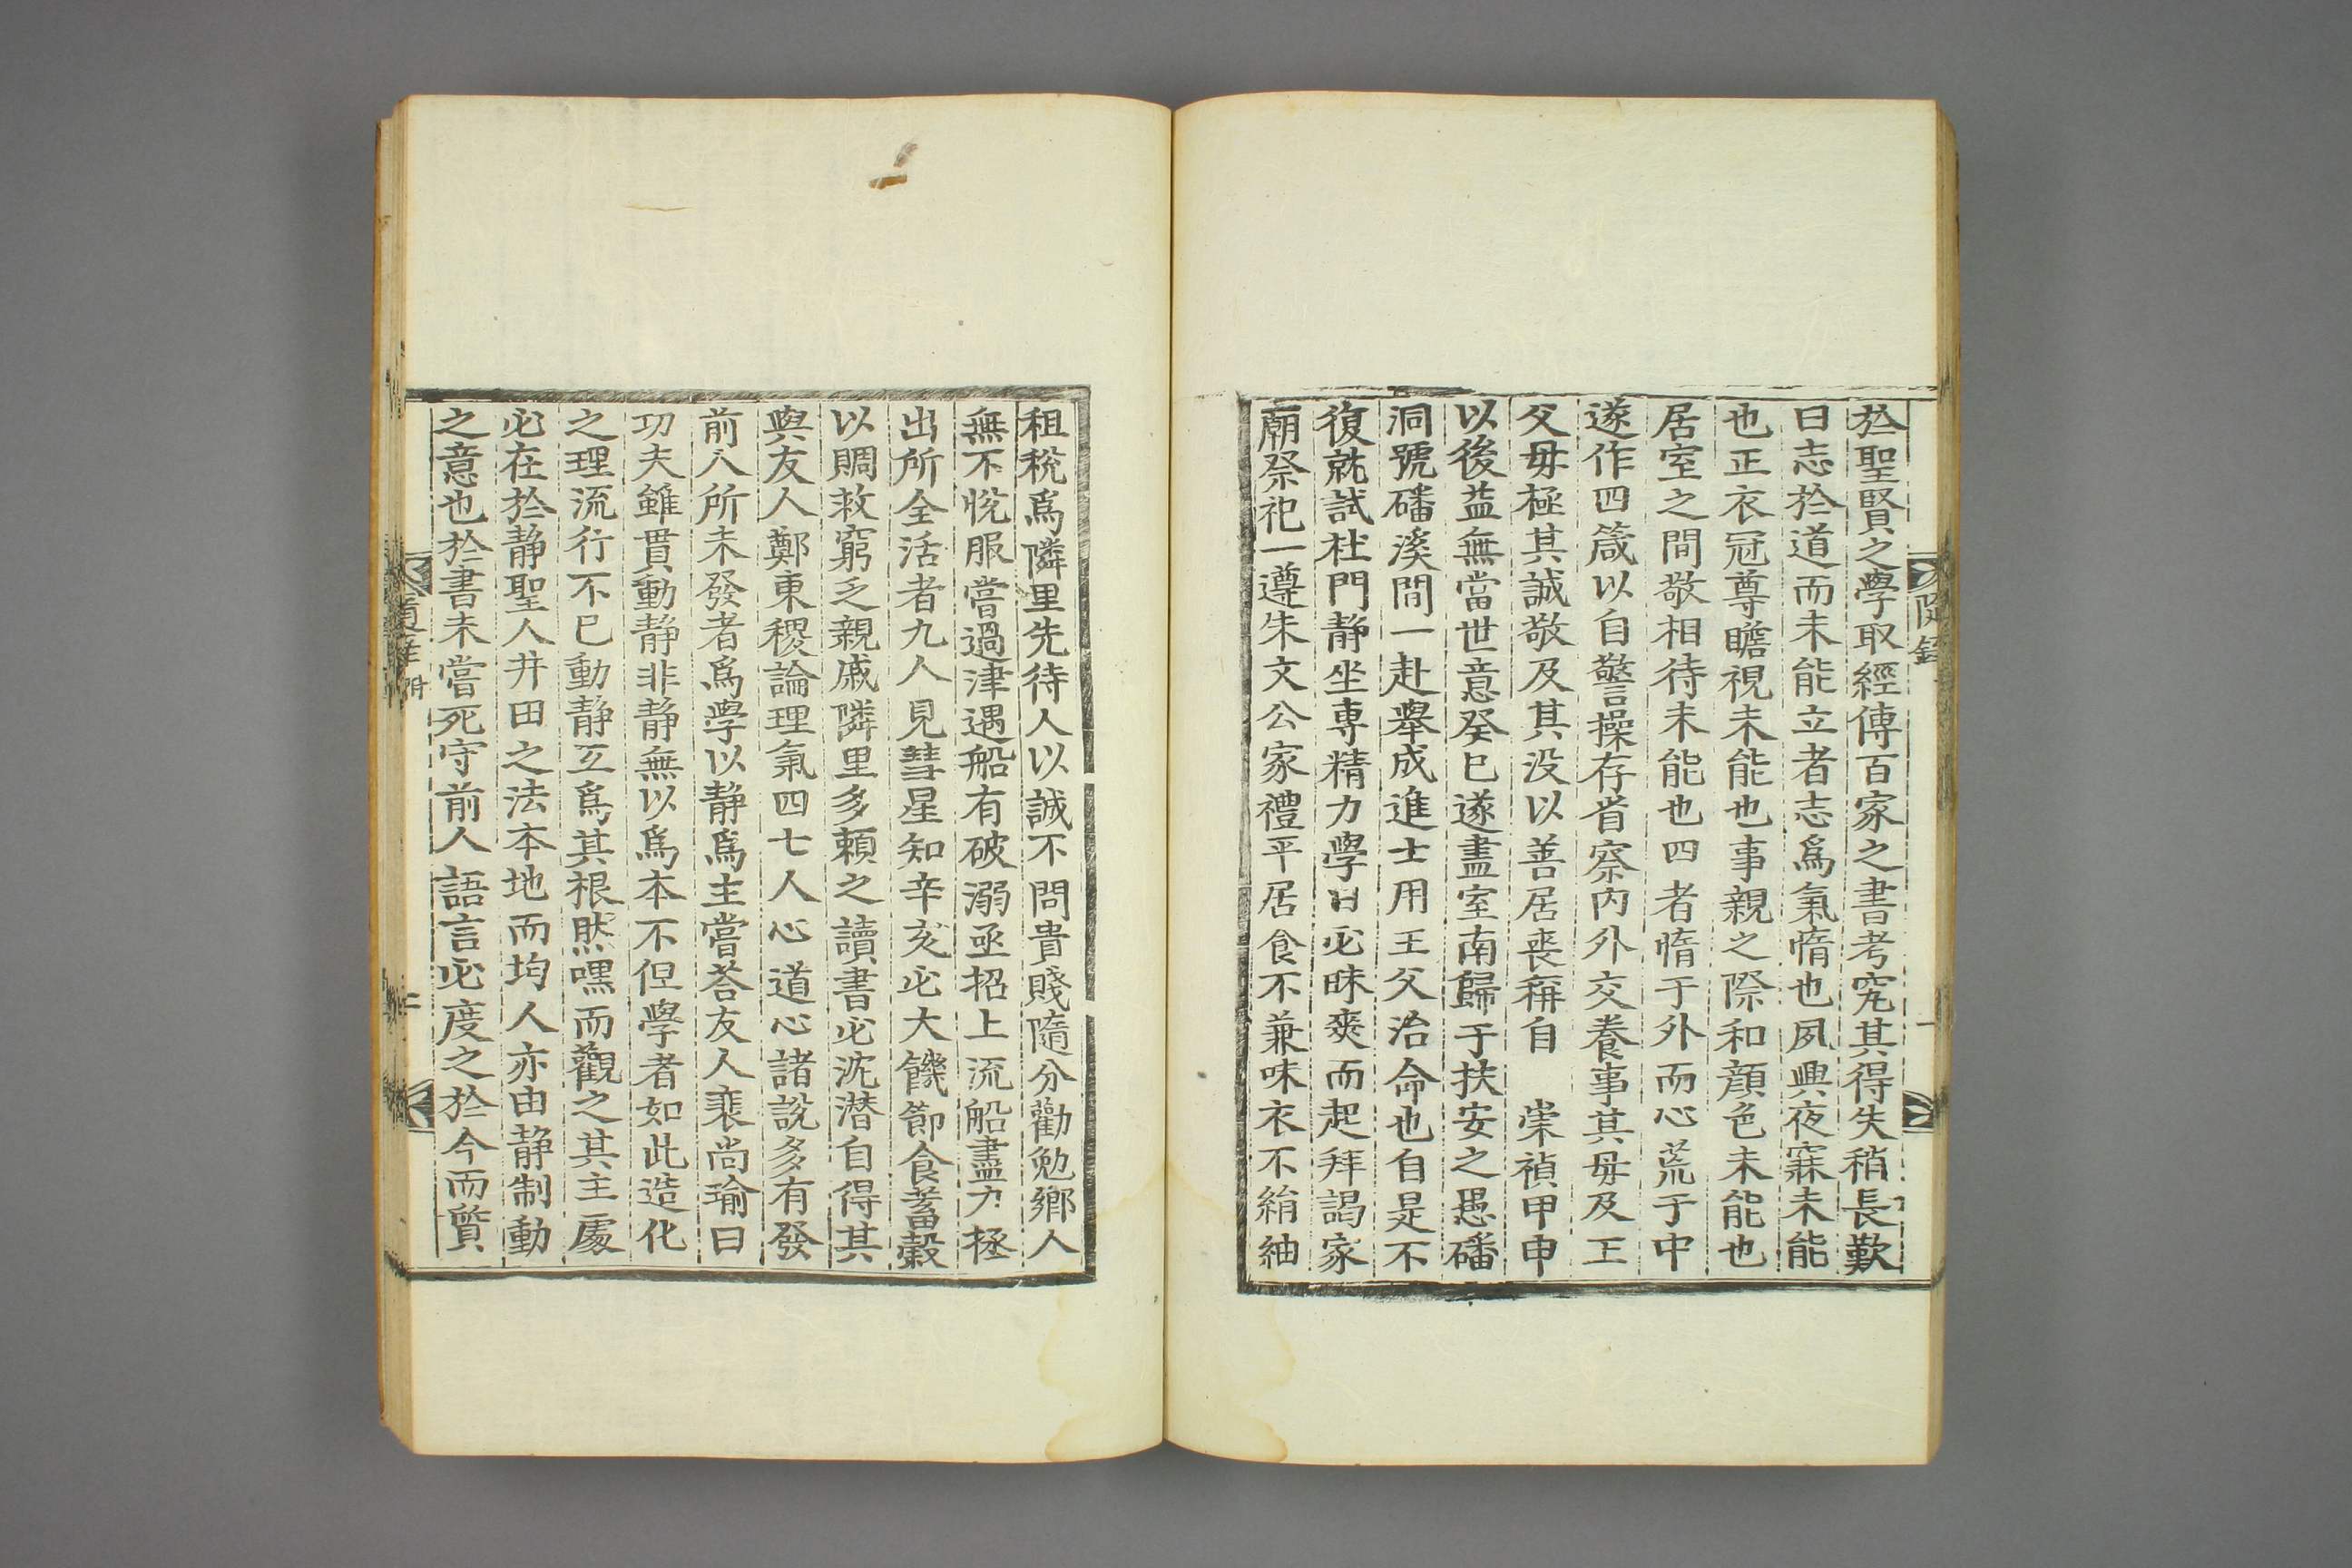 於聖賢之學取經傳百家之書考究其得失稍長歎
曰志於道而未能立者志爲氣惰也夙興夜寐未能
也正衣冠尊瞻視未能也事親之際和顔色未能也
居室之間敬相待未能也四者惰于外而心荒于中
遂作四箴以自警操存省察内外交養事其母及王
父母極其誠敬及其没以善居喪稱自　崇禎甲申
以後益無當世意癸巳遂盡室南歸于扶安之愚磻
洞號磻溪間一赴擧成進士用王父治命也自是不
復就試杜門静坐専精力學日必昧爽而起拜謁家
廟祭祀一遵朱文公家禮平居食不兼味衣不絹紬
隨錄
一
租稅爲隣里先待人以誠不問貴賤隨分勸勉鄕人
無不悅服嘗過津遇船有破溺亟招上流船盡力拯
出所全活者九人見彗星知辛亥必大饑節食蓄穀
以賙救窮乏親戚隣里多頼之讀書必沈潜自得其
與友人鄭東稷論理氣四七人心道心諸說多有發
前人所未發者爲學以静爲主嘗荅友人裵尚瑜曰
功夫雖貫動静非静無以爲本不但學者如此造化
之理流行不已動静互爲其根然嘿而觀之其主處
必在於静聖人井田之法本地而均人亦由静制動
之意也於書未嘗死守前人語言必度之於今而質